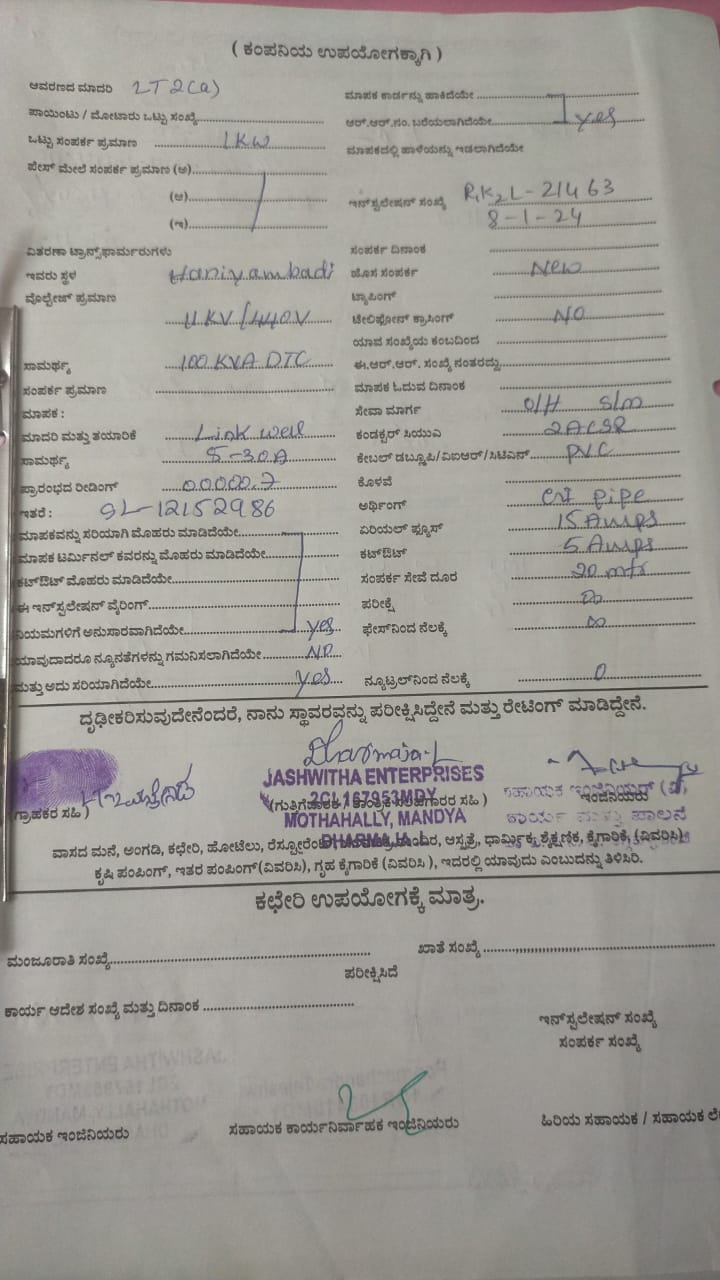 ( ಕಂಪನಿಯ ಉಪಯೋಗಕ್ಕಾಗಿ )
ಆವರಣದ ಮಾದರಿ LT2(a)
ಪಾಯಿಂಟು / ಮೋಟಾರು ಒಟ್ಟು ಸಂಖ್ಯೆ
ಒಟ್ಟು ಸಂಪರ್ಕ ಪ್ರಮಾಣ 1KW
ಫೇಸ್ ಮೇಲೆ ಸಂಪರ್ಕ ಪ್ರಮಾಣ (ಅ)
(ಆ)
(ಇ)
ವಿತರಣಾ ಟ್ರಾನ್ಸ್‌ಫಾರ್ಮರುಗಳು
ಇವರು ಸ್ಥಳ Haniyambadi
ವೊಲ್ಟೇಜ್ ಪ್ರಮಾಣ
11KV/440V
ಸಾಮರ್ಥ್ಯ 100 KVA DTC
ಸಂಪರ್ಕ ಪ್ರಮಾಣ
ಮಾಪಕ :
ಮಾದರಿ ಮತ್ತು ತಯಾರಿಕೆ Link well
ಸಾಮರ್ಥ್ಯ 5-30A
ಪ್ರಾರಂಭದ ರೀಡಿಂಗ್ 00000.7
ಇತರೆ : 9L-12152986
ಮಾಪಕವನ್ನು ಸರಿಯಾಗಿ ಮೊಹರು ಮಾಡಿದೆಯೇ
ಮಾಪಕ ಟರ್ಮಿನಲ್ ಕವರನ್ನು ಮೊಹರು ಮಾಡಿದೆಯೇ
ಕಟ್‌ಔಟ್ ಮೊಹರು ಮಾಡಿದೆಯೇ
ಈ ಇನ್‌ಸ್ಟಲೇಷನ್ ವೈರಿಂಗ್
ನಿಯಮಗಳಿಗೆ ಅನುಸಾರವಾಗಿದೆಯೇ yes
ಯಾವುದಾದರೂ ನ್ಯೂನತೆಗಳನ್ನು ಗಮನಿಸಲಾಗಿದೆಯೇ NO
ಮತ್ತು ಅದು ಸರಿಯಾಗಿದೆಯೇ yes
ಮಾಪಕ ಕಾರ್ಡನ್ನು ಹಾಕಿದೆಯೇ
ಆರ್.ಆರ್.ನಂ. ಬರೆಯಲಾಗಿದೆಯೇ yes
ಮಾಪಕದಲ್ಲಿ ಹಾಳೆಯನ್ನು ಇಡಲಾಗಿದೆಯೇ
ಇನ್‌ಸ್ಟಲೇಷನ್ ಸಂಖ್ಯೆ R1K2L-21463
8-1-24
ಸಂಪರ್ಕ ದಿನಾಂಕ
ಹೊಸ ಸಂಪರ್ಕ New
ಟ್ಯಾಪಿಂಗ್
ಟೇಲಿಫೋನ್ ಕ್ರಾಸಿಂಗ್ NO
ಯಾವ ಸಂಖ್ಯೆಯ ಕಂಬದಿಂದ
ಈ.ಆರ್.ಆರ್. ಸಂಖ್ಯೆ ನಂತರದ್ದು
ಮಾಪಕ ಓದುವ ದಿನಾಂಕ
ಸೇವಾ ಮಾರ್ಗ O/H S/m
ಕಂಡಕ್ಟರ್ ಸಿಯುಎ 2ACSR
ಕೇಬಲ್ ಡಬ್ಲ್ಯೂಪಿ/ವಿಐಆರ್/ಸಿಟಿಎಸ್ PVC
ಕೊಳವೆ
ಅರ್ಥಿಂಗ್ GI pipe
ಏರಿಯಲ್ ಫ್ಯೂಸ್ 15 Amps
ಕಟ್‌ಔಟ್ 5 Amps
ಸಂಪರ್ಕ ಸೇವೆ ದೂರ 20 mtr
ಪರೀಕ್ಷೆ ∞
ಫೇಸ್‌ನಿಂದ ನೆಲಕ್ಕೆ ∞
ನ್ಯೂಟ್ರಲ್‌ನಿಂದ ನೆಲಕ್ಕೆ 0
ದೃಢೀಕರಿಸುವುದೇನೆಂದರೆ, ನಾನು ಸ್ಥಾವರವನ್ನು ಪರೀಕ್ಷಿಸಿದ್ದೇನೆ ಮತ್ತು ರೇಟಿಂಗ್ ಮಾಡಿದ್ದೇನೆ.
Dharmaja.L
JASHWITHA ENTERPRISES
2CL167953MDY
MOTHAHALLY, MANDYA
DHARMAJA.L
(ಗ್ರಾಹಕರ ಸಹಿ)
ಸಹಾಯಕ ಇಂಜಿನಿಯರ್ (ವಿ)
ಇಂಜಿನಿಯರು
ಕಾರ್ಯ ಮತ್ತು ಪಾಲನೆ
ವಾಸದ ಮನೆ, ಅಂಗಡಿ, ಕಛೇರಿ, ಹೋಟೆಲು, ಆಸ್ಪತ್ರೆ, ಧಾರ್ಮಿಕ, ಶೈಕ್ಷಣಿಕ, ಕೈಗಾರಿಕೆ, (ವಿವರಿಸಿ)
ಕೃಷಿ ಪಂಪಿಂಗ್, ಇತರ ಪಂಪಿಂಗ್(ವಿವರಿಸಿ), ಗೃಹ ಕೈಗಾರಿಕೆ (ವಿವರಿಸಿ ), ಇದರಲ್ಲಿ ಯಾವುದು ಎಂಬುದನ್ನು ತಿಳಿಸಿರಿ.
ಕಛೇರಿ ಉಪಯೋಗಕ್ಕೆ ಮಾತ್ರ.
ಮಂಜೂರಾತಿ ಸಂಖ್ಯೆ
ಖಾತೆ ಸಂಖ್ಯೆ
ಪರೀಕ್ಷಿಸಿದೆ
ಕಾರ್ಯ ಆದೇಶ ಸಂಖ್ಯೆ ಮತ್ತು ದಿನಾಂಕ
ಇನ್‌ಸ್ಟಲೇಷನ್ ಸಂಖ್ಯೆ
ಸಂಪರ್ಕ ಸಂಖ್ಯೆ
ಸಹಾಯಕ ಇಂಜಿನಿಯರು
ಸಹಾಯಕ ಕಾರ್ಯನಿರ್ವಾಹಕ ಇಂಜಿನಿಯರು
ಹಿರಿಯ ಸಹಾಯಕ / ಸಹಾಯಕ